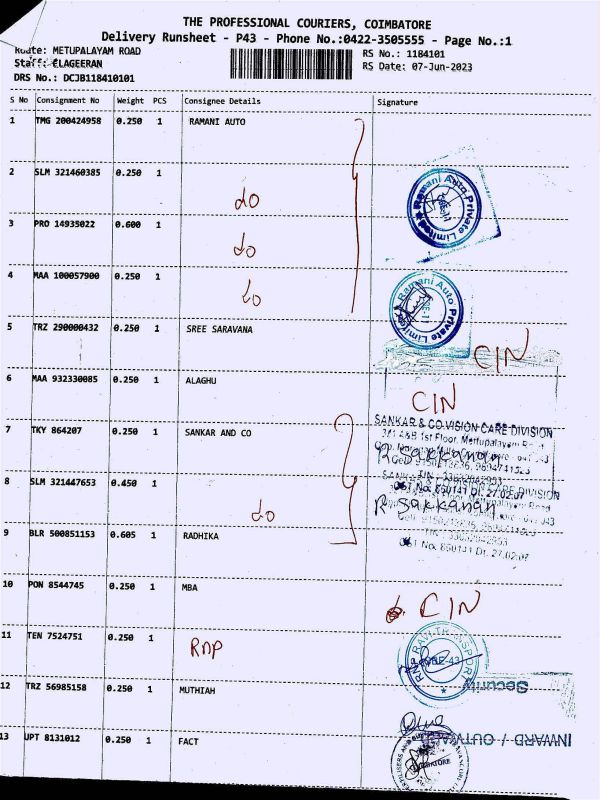 THE PROFESSIONAL COURIERS, COIMBATORE
Delivery Runsheet - P43 - Phone No.:0422-3505555 - Page No.:1
Route: METUPALAYAM ROAD
RS No.: 1184101
Staff: ELAGEERAN
RS Date: 07-Jun-2023
DRS No.: DCJB118410101
S No Consignment No Weight PCS Consignee Details Signature
1 TMG 200424958 0.250 1 RAMANI AUTO
2 SLM 321460385 0.250 1
do
Ramani Auto Private Limited
3 PRO 14935022 0.600 1
do
4 MAA 100057900 0.250 1
do
Ramani Auto Private Limited
5 TRZ 290000432 0.250 1 SREE SARAVANA
CIN
6 MAA 932330085 0.250 1 ALAGHU
CIN
SANKAR & CO.VISION CARE DIVISION
1st Floor, Mettupalayam Road
7 TKY 864207 0.250 1 SANKAR AND CO
R Sakkanan
8 SLM 321447653 0.450 1
do
GST No: 650141 Dt. 27.02.07
R Sakkanan
9 BLR 500851153 0.605 1 RADHIKA
GST No: 650141 Dt. 27.02.07
10 PON 8544745 0.250 1 MBA
CIN
11 TEN 7524751 0.250 1
RNP
12 TRZ 56985158 0.250 1 MUTHIAH
Security
INWARD / OUTWARD
13 UPT 8131012 0.250 1 FACT